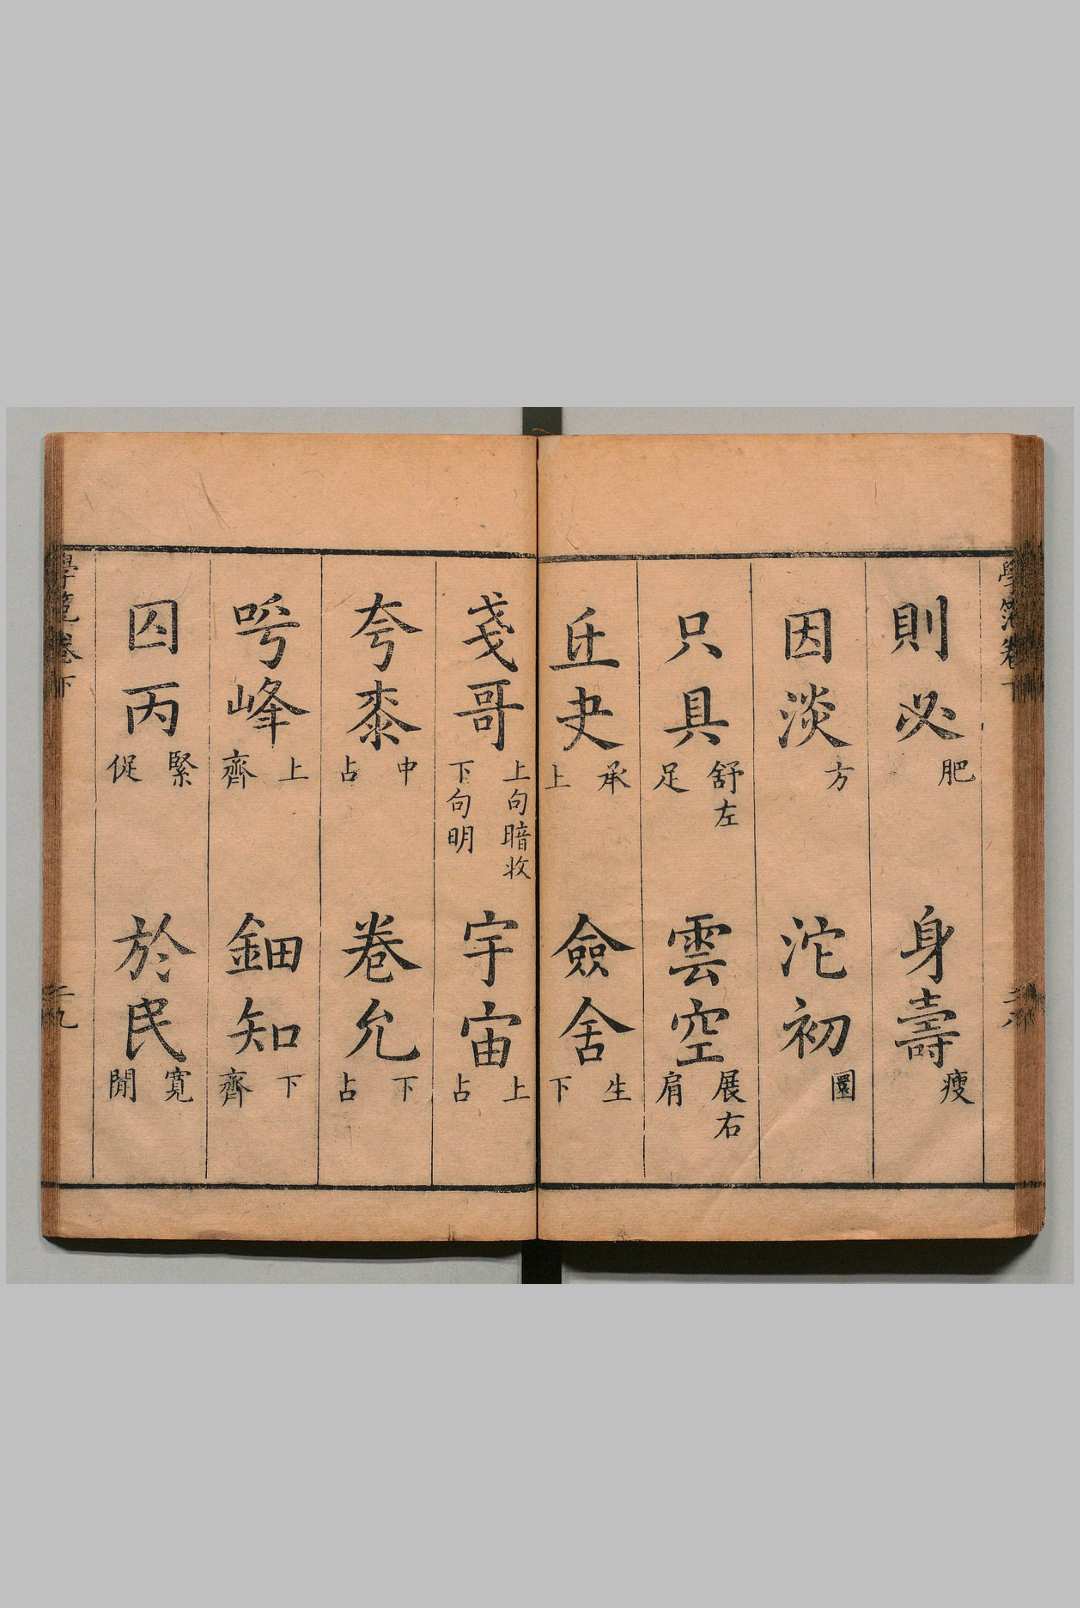 則必 肥
身壽 瘦
因淡 方
沱初 圓
只具 舒左足
雲空 展右肩
丘吏 承上
僉舍 生下
戔哥 上句暗收下句明
宇宙 上占
夸桼 中占
卷允 下占
咢峰 上齊
鈿知 下齊
囚丙 緊促
於民 寬閒
學範卷下
二九